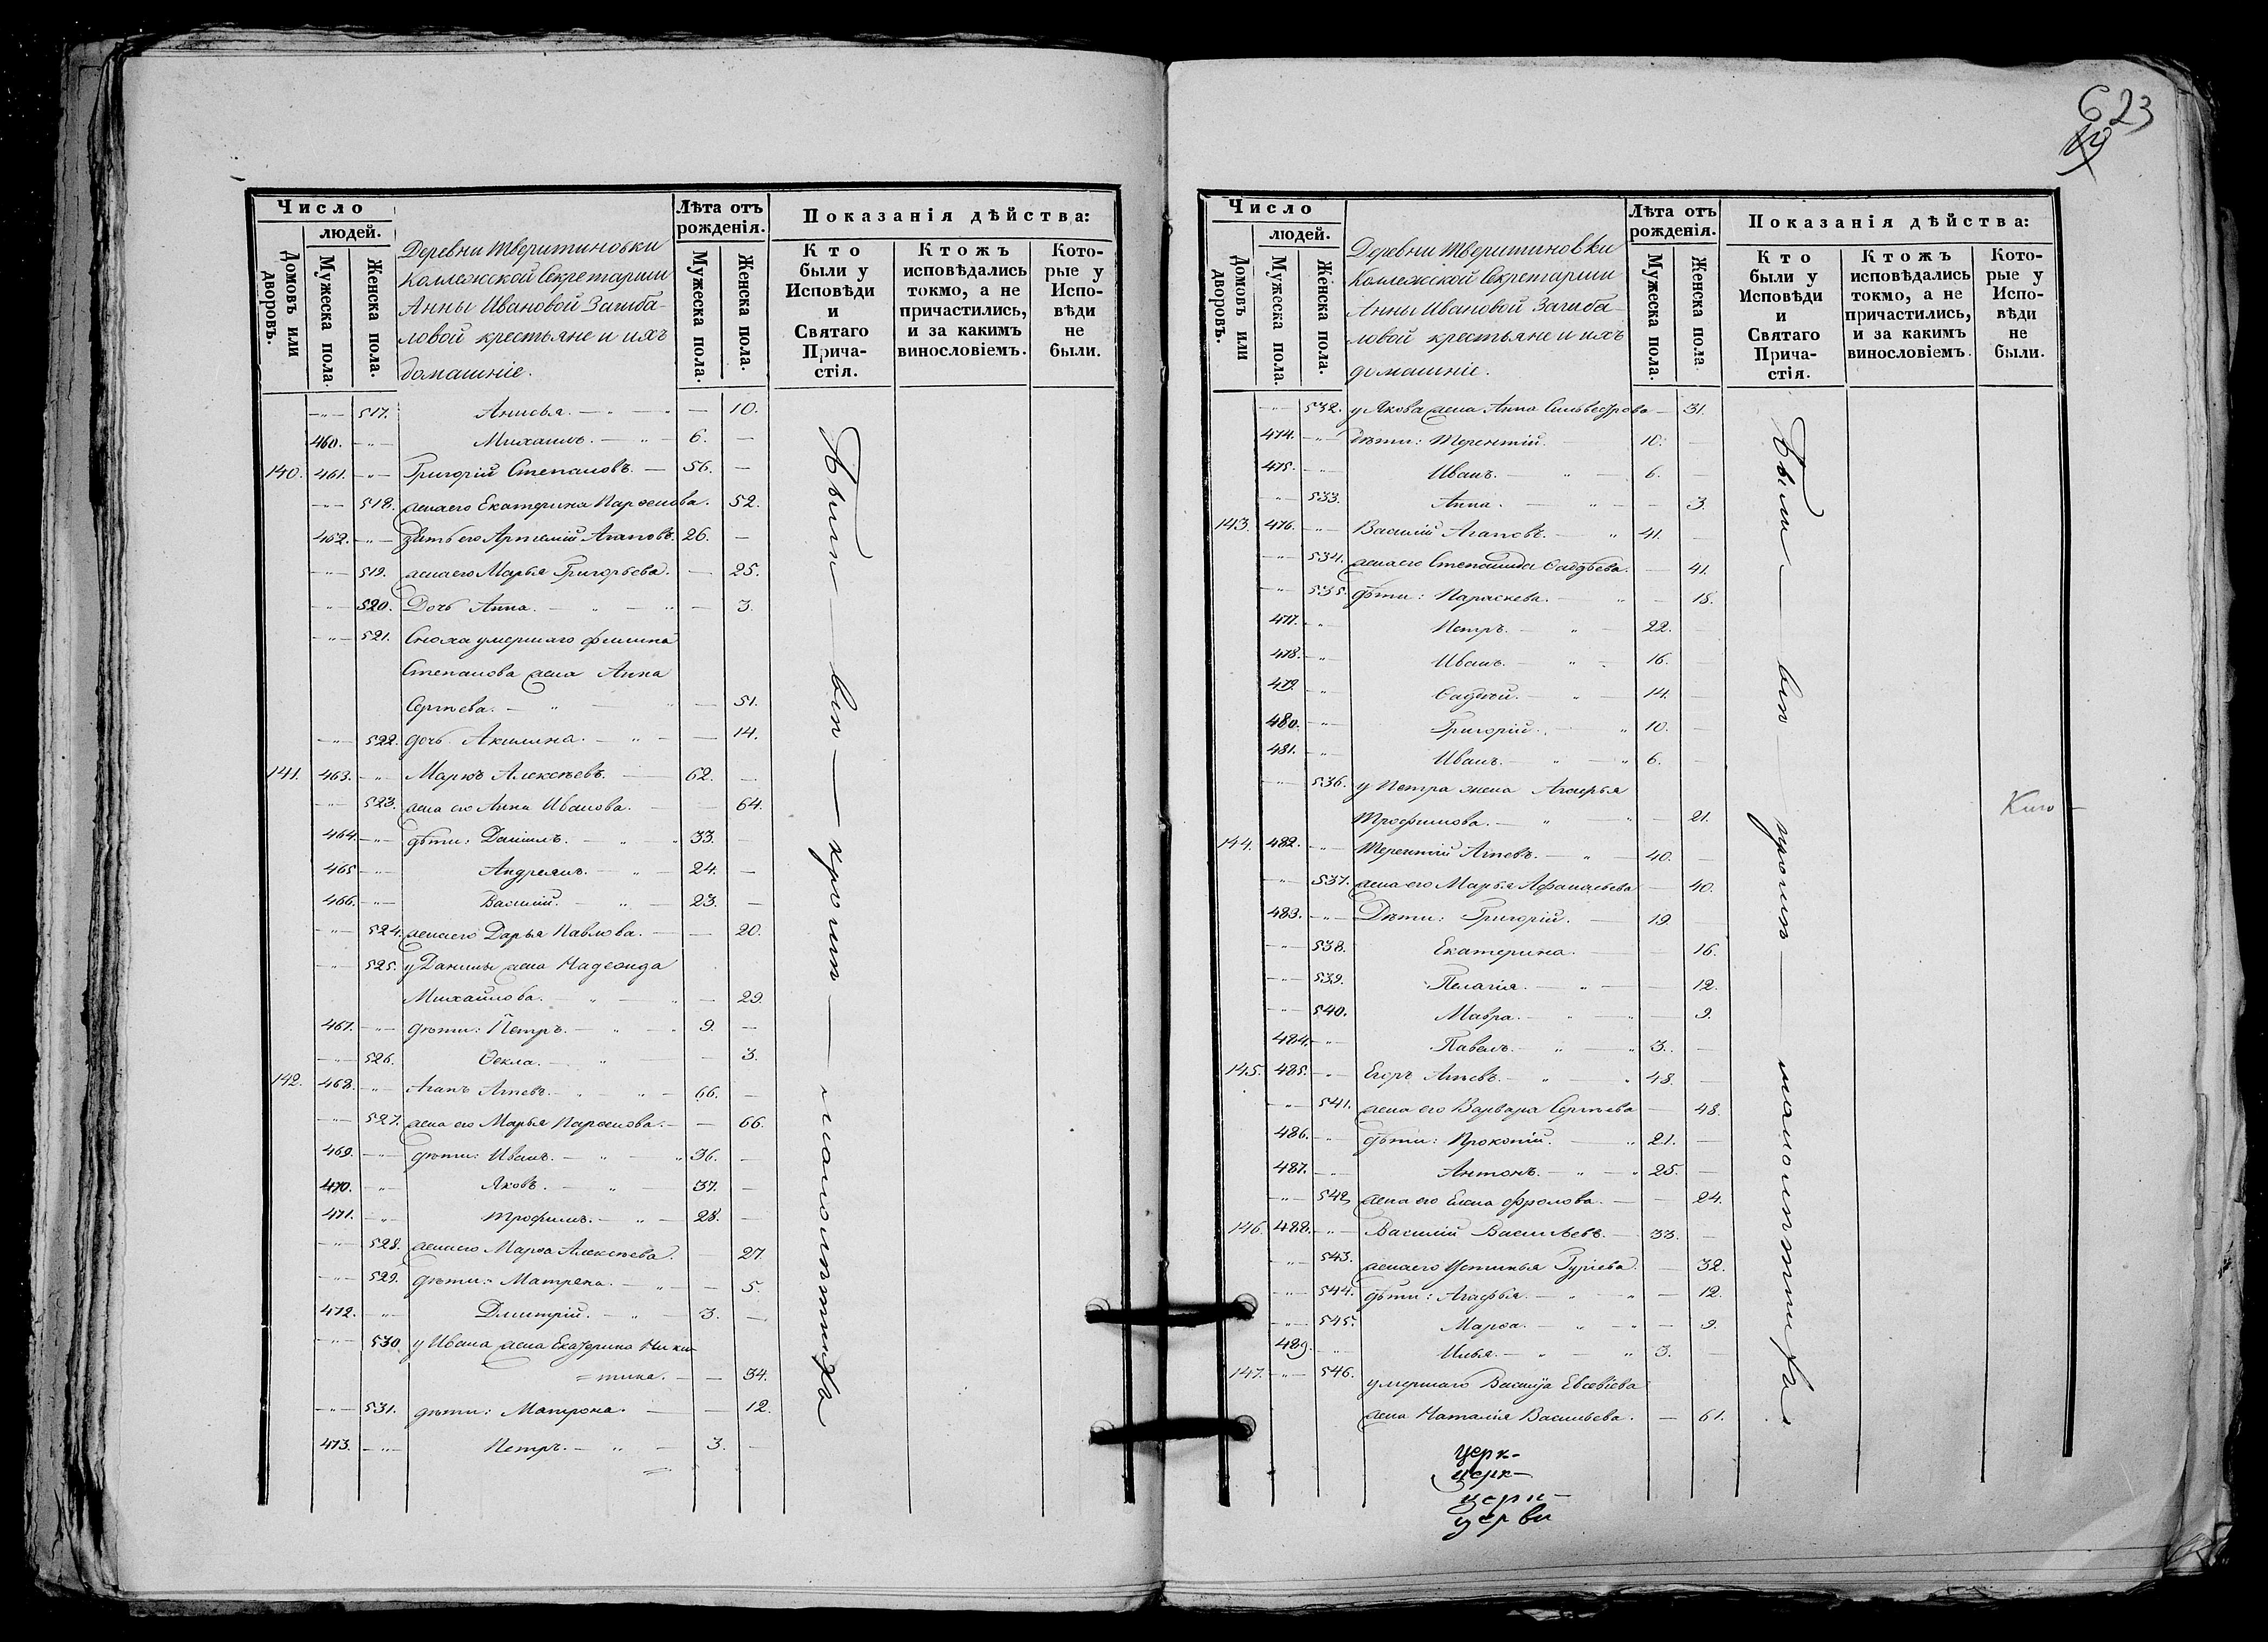 Число
людей.
Домовъ или дворовъ.
Мужеска пола.
Женска пола.
Деревни Тверитиновки
Коллежской Секретарши
Анны Ивановой Загиба-
ловой крестьяне и ихъ
домашніе.
Лѣта отъ
рожденія.
Мужеска пола.
Женска пола.
Показанія дѣйства:
Кто
были у
Исповѣди
и
Святаго
Прича-
стія.
Ктожъ
исповѣдались
токмо, а не
причастились,
и за какимъ
винословіемъ.
Кото-
рые у
Испо-
вѣди
не
были.
517. Анисья. 10.
460. Михаилъ. 6.
140. 461. Григорій Степановъ. 56.
518. жена его Екатерина Парѳенова. 52.
462. зять его Артемій Агаповъ. 26.
519. жена его Марья Григорьева. 25.
520. Дочь Анна. 3.
521. Сноха умершаго Филипа
Степанова жена Анна
Сергѣева. 51.
522. дочь Акилина. 14.
141. 463. Алексѣевъ. 62.
523. жена его Анна Иванова. 64.
464. дѣти: Даніилъ. 33.
465. Андреянъ. 24.
466. Василій. 23.
524. жена его Дарья Павлова. 20.
525. у Данилы жена Надежда
Михайлова. 29.
467. дѣти: Петръ. 9.
526. Ѳекла. 3.
142. 468. Агапъ Агѣевъ. 66.
527. жена его Марья Парѳенова. 66.
469. дѣти: Иванъ. 36.
470. Яковъ. 37.
471. Трофимъ. 28.
528. жена его Марѳа Алексѣева. 27.
529. дѣти: Матрена. 5.
472. Дмитрій. 3.
530. у Ивана жена Екатерина Ники-
=тина. 34.
531. дѣти: Матрона. 12.
473. Петръ. 3.
Были — вси — кромѣ — малолѣтныхъ
623
Число
людей.
Домовъ или дворовъ.
Мужеска пола.
Женска пола.
Деревни Тверитиновки
Коллежской Секретарши
Анны Ивановой Загиба-
ловой крестьяне и ихъ
домашніе.
Лѣта отъ
рожденія.
Мужеска пола.
Женска пола
Показанія дѣйства:
Кто
были у
Исповѣди
и
Святаго
Прича-
стія.
Ктожъ
исповѣдались
токмо, а не
причастились,
и за какимъ
винословіемъ.
Кото-
рые у
Испо-
вѣди
не
были.
532. у Якова жена Анна Сильвестрова 31.
474. дѣти: Терентій. 10.
475. Иванъ. 6.
533. Анна. 3.
143. 476. Василій Агаповъ. 41.
534. жена его Степанида Садѳьева. 41.
535. дѣти: Параскева. 18.
477. Петръ. 22.
478. Иванъ. 16.
479. 14.
480. Григорій. 10.
481. Иванъ. 6.
536. у Петра жена Агафья
Трофимова. 21.
144. 482. Терентій Агѣевъ. 40.
537. жена его Марья Афанасьева 40.
483. Дѣти: Григорій. 19.
538. Екатерина. 16.
539. Пелагія. 12.
540. Мавра. 9.
484. Павелъ. 3.
145. 485. Егоръ Агѣевъ. 48.
541. жена его Варвара Сергѣева 48.
486. дѣти: Прокопій. 21.
487. Антонъ. 25.
542. жена его Елена Фролова. 24.
146. 488. Василій Васильевъ. 33.
543. жена его Устинья Гуріева. 32.
544. дѣти: Агафья. 12.
545. Марѳа. 9.
489. Илья. 3.
147. 546. умершаго Евсевіева
жена Наталія Васильева. 61.
Были — вси — кромѣ — малолѣтныхъ.
церк-
церк-
церк-
церви